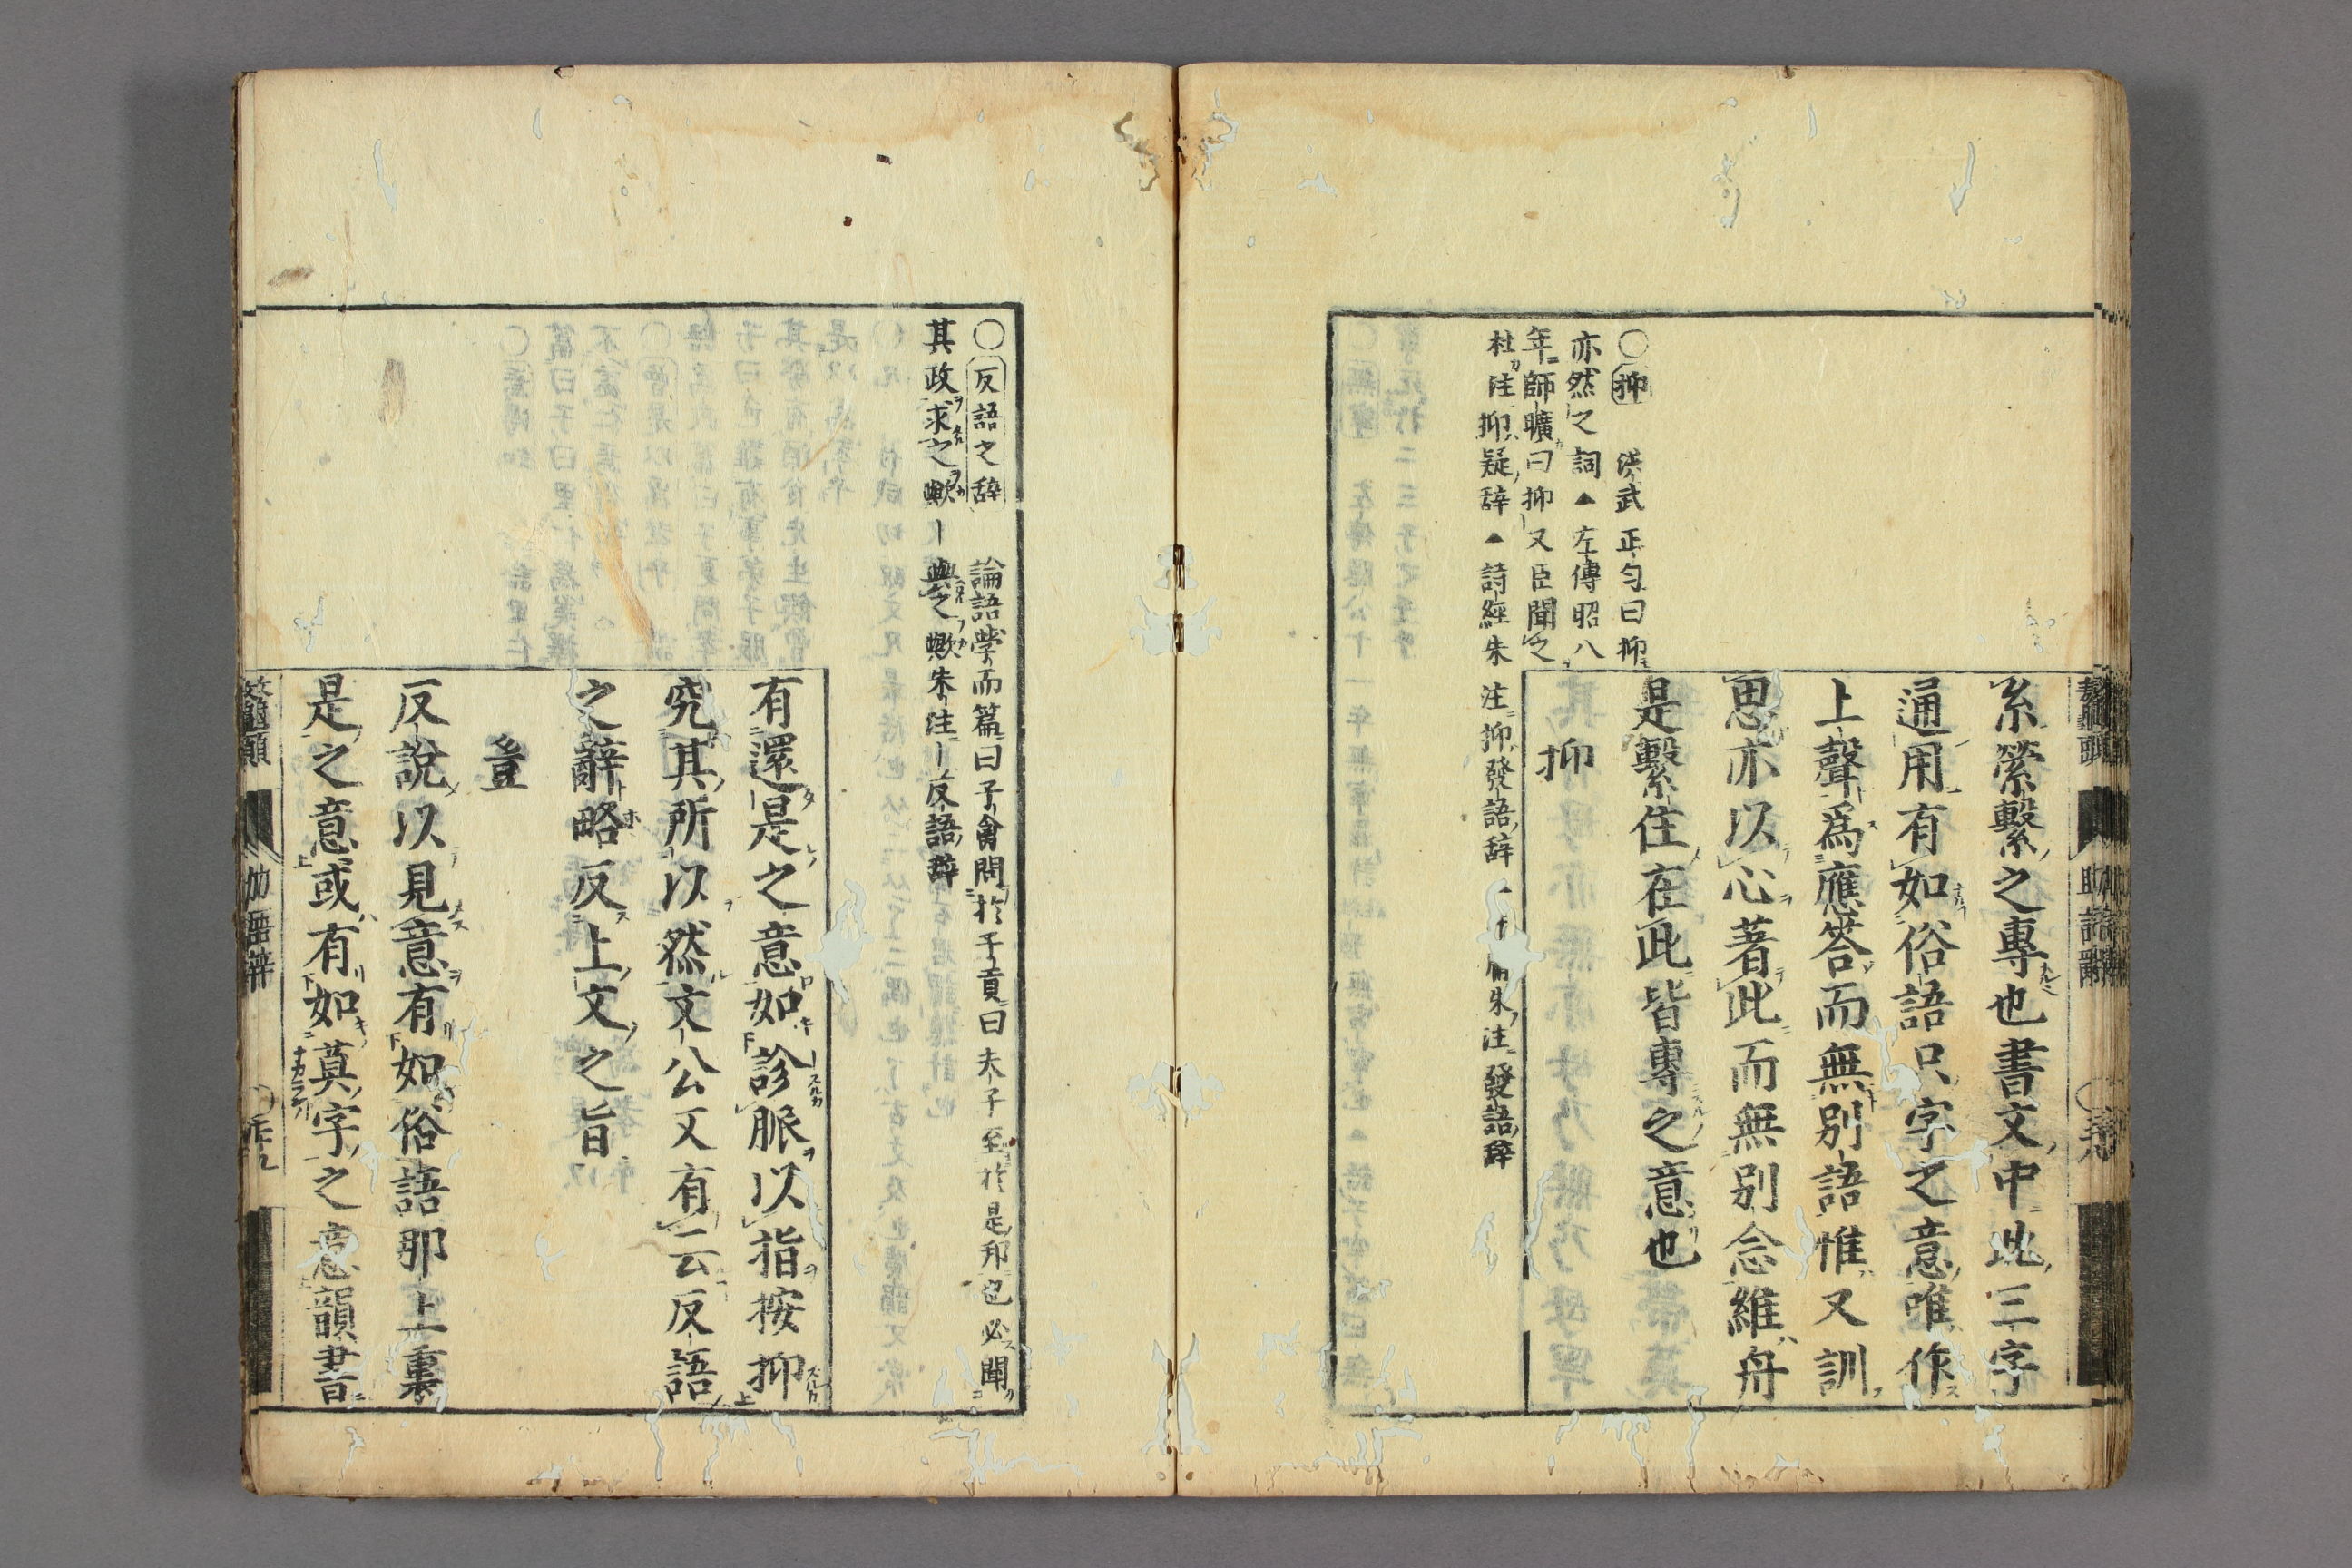 糸縈繫之專也書文中此三字
通用有如俗語只字之意唯作
上聲爲應答而無別語惟又訓
思亦以心著此而無別念維舟
是繫住在此皆專之意也
抑
○抑 洪武正匀曰抑
亦然之詞▲左傳昭八
年師曠曰抑又臣聞之
杜注抑疑辞▲詩經朱注抑發語辞 朱注發語辞
○反語之辞 論語学而篇曰子禽問於子貢曰夫子至於是邦也必聞
其政求之歟｜與之歟朱注｜反語辞
有還是之意如診脈以指按抑
究其所以然文公又有云反語
之辭略反上文之旨
豈
反說以見意有如俗語那上裏
是之意或有如莫字之意韻書
鼇頭 助語辭